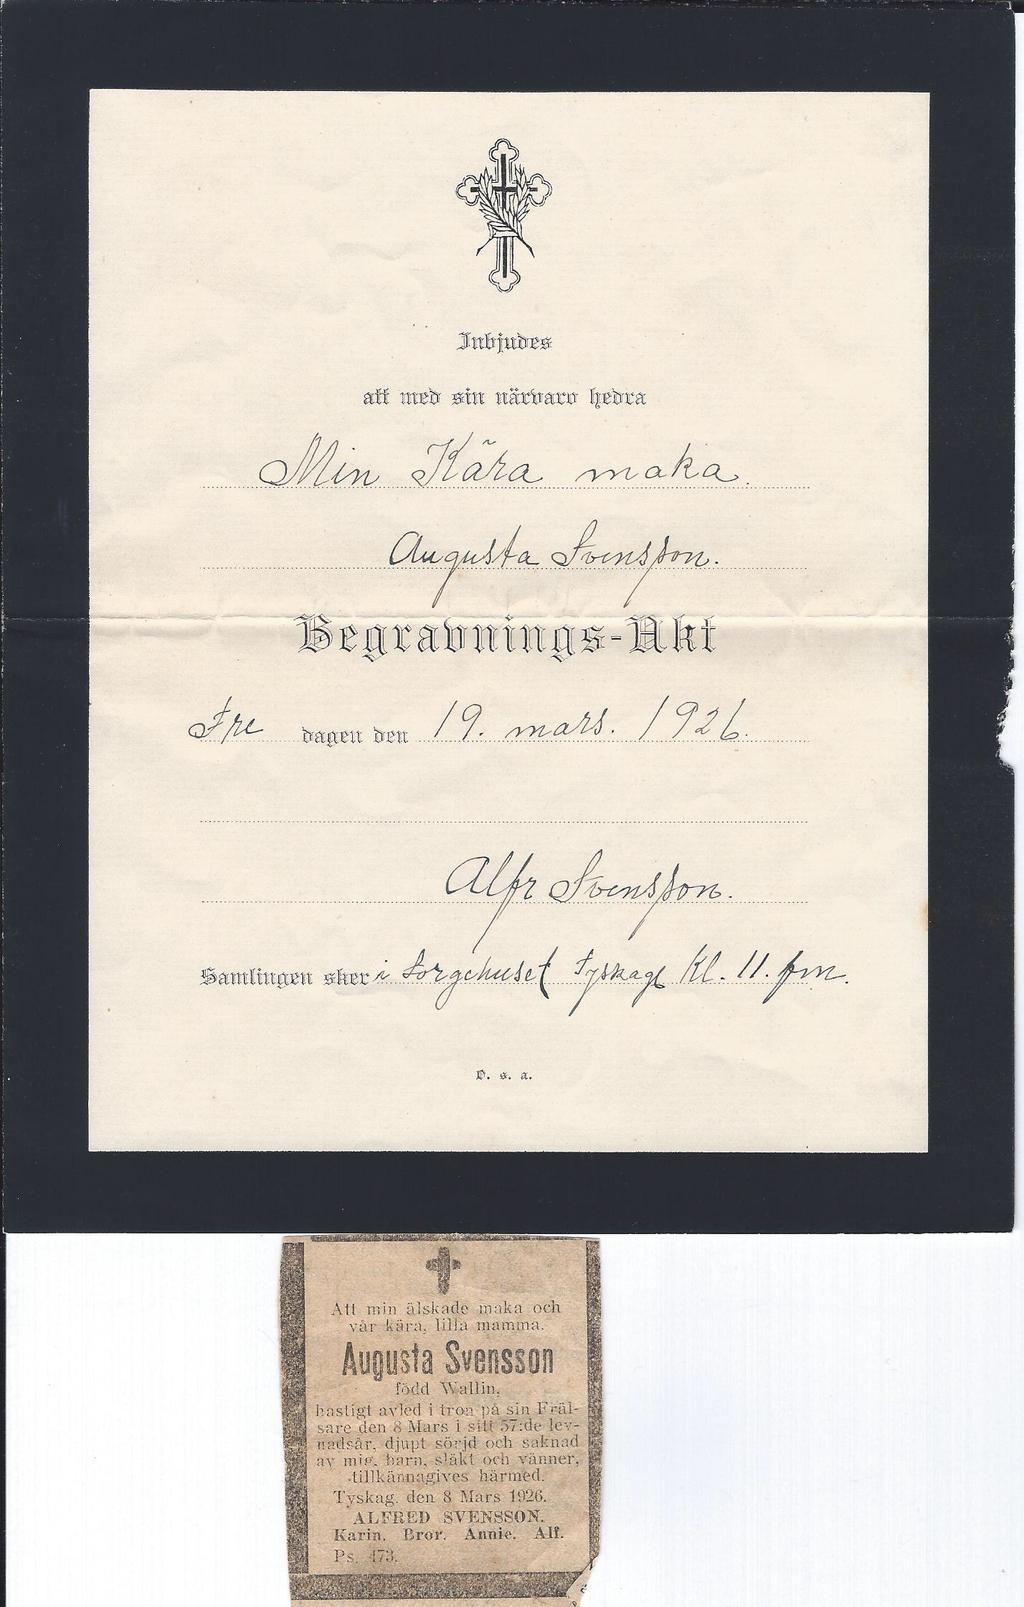 Inbjudes
att med sin närvaro hedra
Min Kära maka.
Augusta Svensson.
Begravnings-Akt
Fre dagen den 19. mars. 1926.
Alfr Svensson.
Samlingen sker i Sorgehuset Tyskag Kl. 11. fm.
O. s. a.
Att min älskade maka och
vår kära, lilla mamma,
Augusta Svensson
född Wallin,
hastigt avled i tron på sin Fräl-
sare den 8 Mars i sitt 57:de lev-
nadsår, djupt sörjd och saknad
av mig, barn, släkt och vänner,
tillkännagives härmed.
Tyskag. den 8 Mars 1926.
ALFRED SVENSSON.
Karin. Bror. Annie. Alf.
Ps. 473.